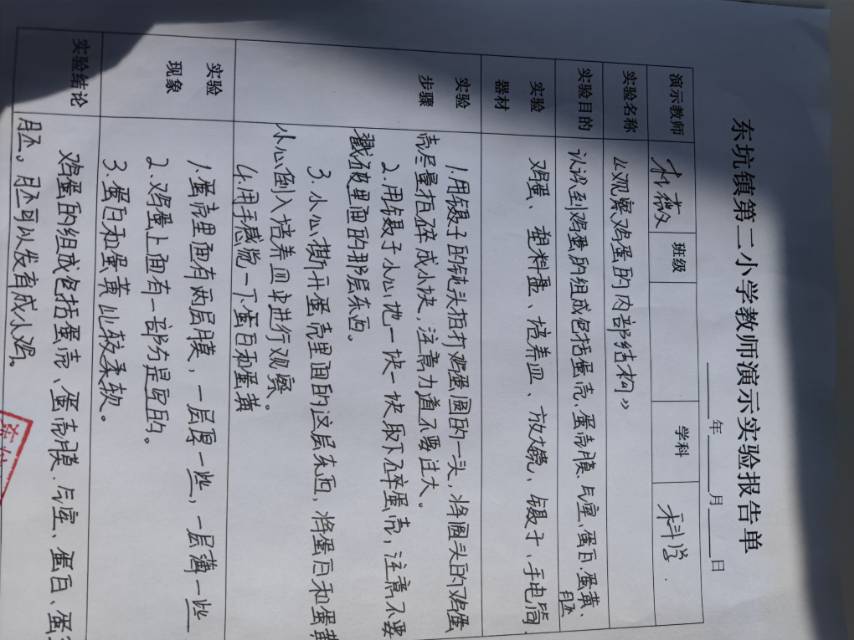 东坑镇第二小学教师演示实验报告单
年 月 日
演示教师 班级 学科 科学
实验名称 《观察鸡蛋的内部结构》
实验目的 认识到鸡蛋的组成包括蛋壳、蛋壳膜、气室、蛋白、蛋黄、胚
实验器材 鸡蛋、塑料盘、培养皿、放大镜、镊子、手电筒
实验步骤 1.用镊子的钝头拍打鸡蛋圆的一头,将圆头的鸡蛋
壳尽量压碎成小块,注意力道不要过大。
2.用镊子小心地一块一块取下碎蛋壳,注意不要
戳破里面的那层东西。
3.小心撕开蛋壳里面的这层东西,将蛋白和蛋黄
小心倒入培养皿中进行观察。
4.用手感觉一下蛋白和蛋黄
实验现象 1.蛋壳里面有两层膜,一层厚一些,一层薄一些
2.鸡蛋上面有一部分是空的。
3.蛋白和蛋黄比较柔软。
实验结论 鸡蛋的组成包括蛋壳、蛋壳膜、气室、蛋白、蛋
胚。胚可以发育成小鸡。